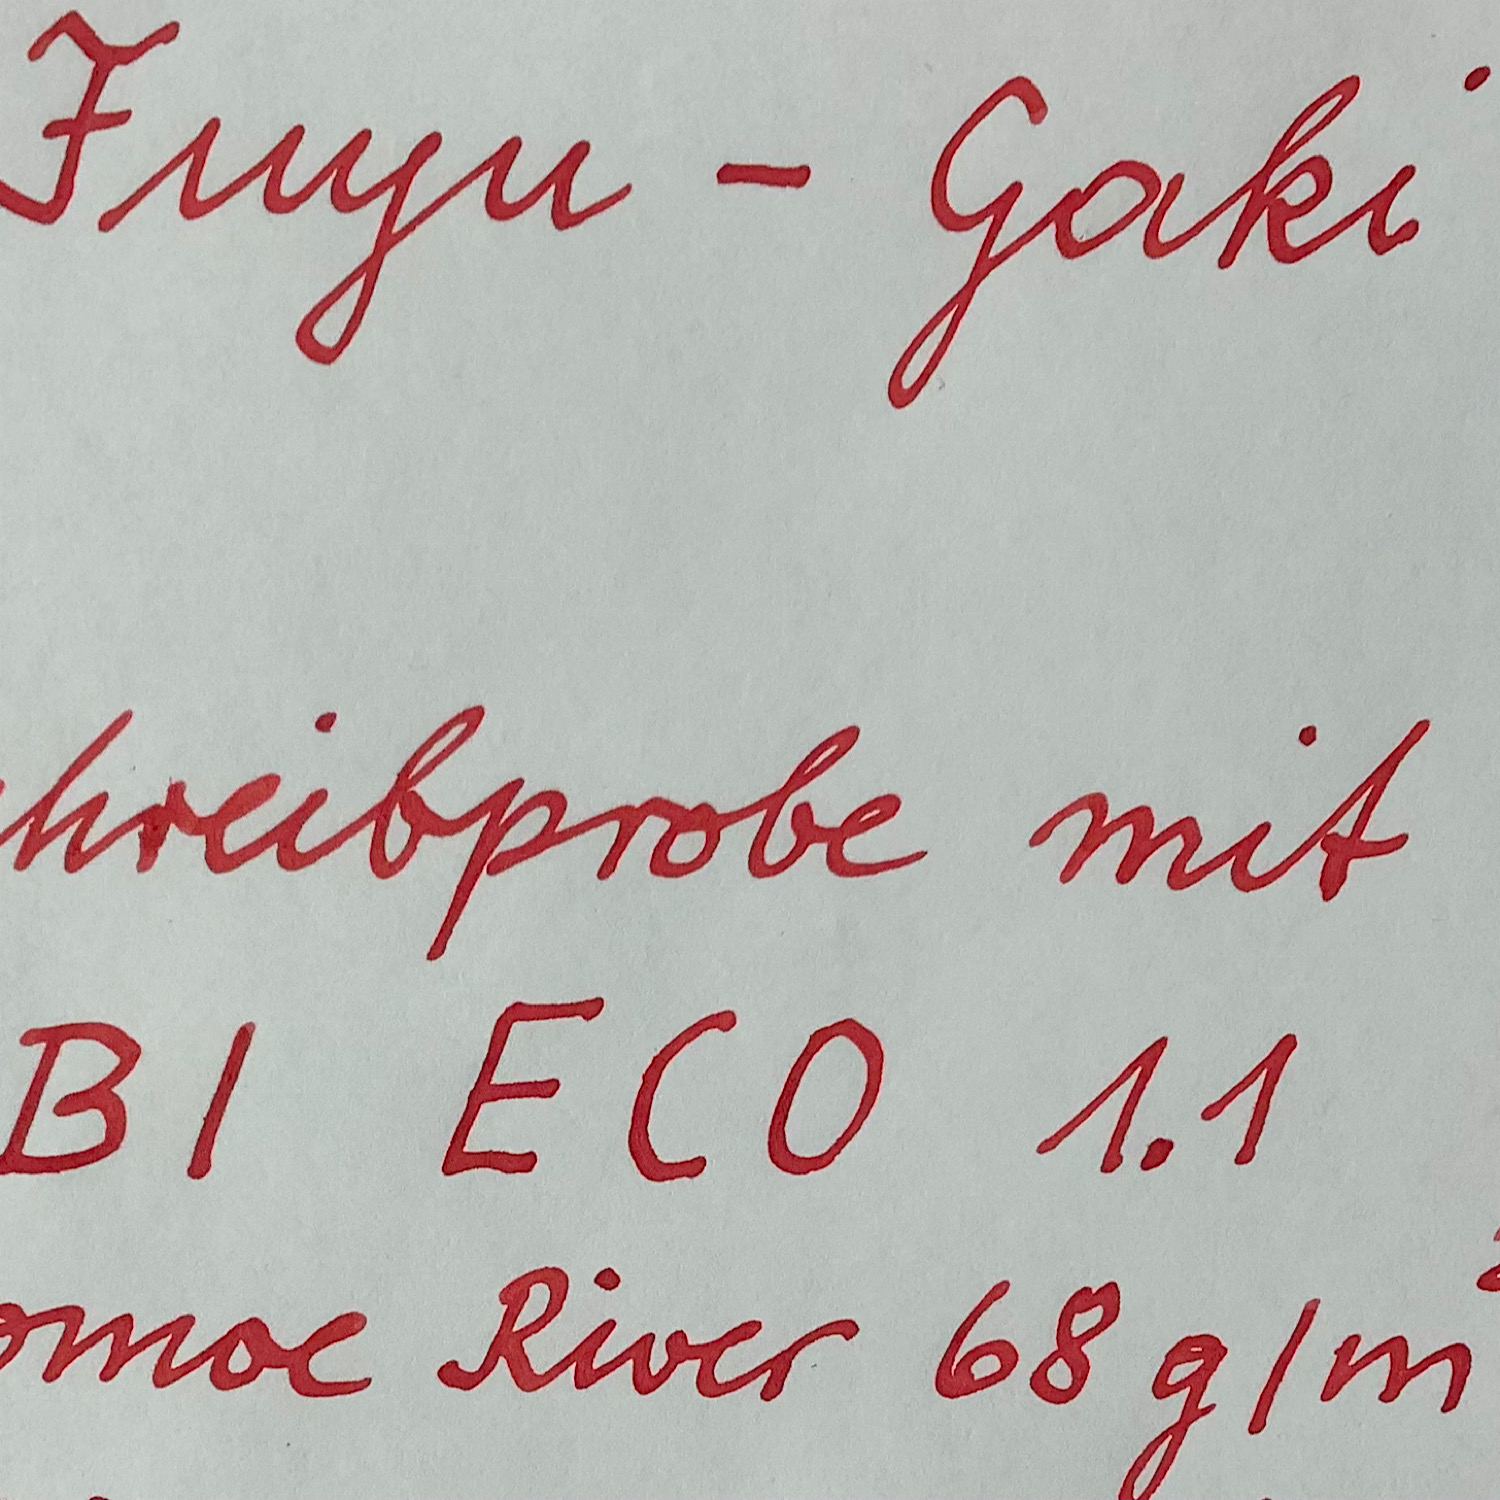 Fuyu - Gaki
chreibprobe mit
BI ECO 1.1
omoe River 68 g/m²